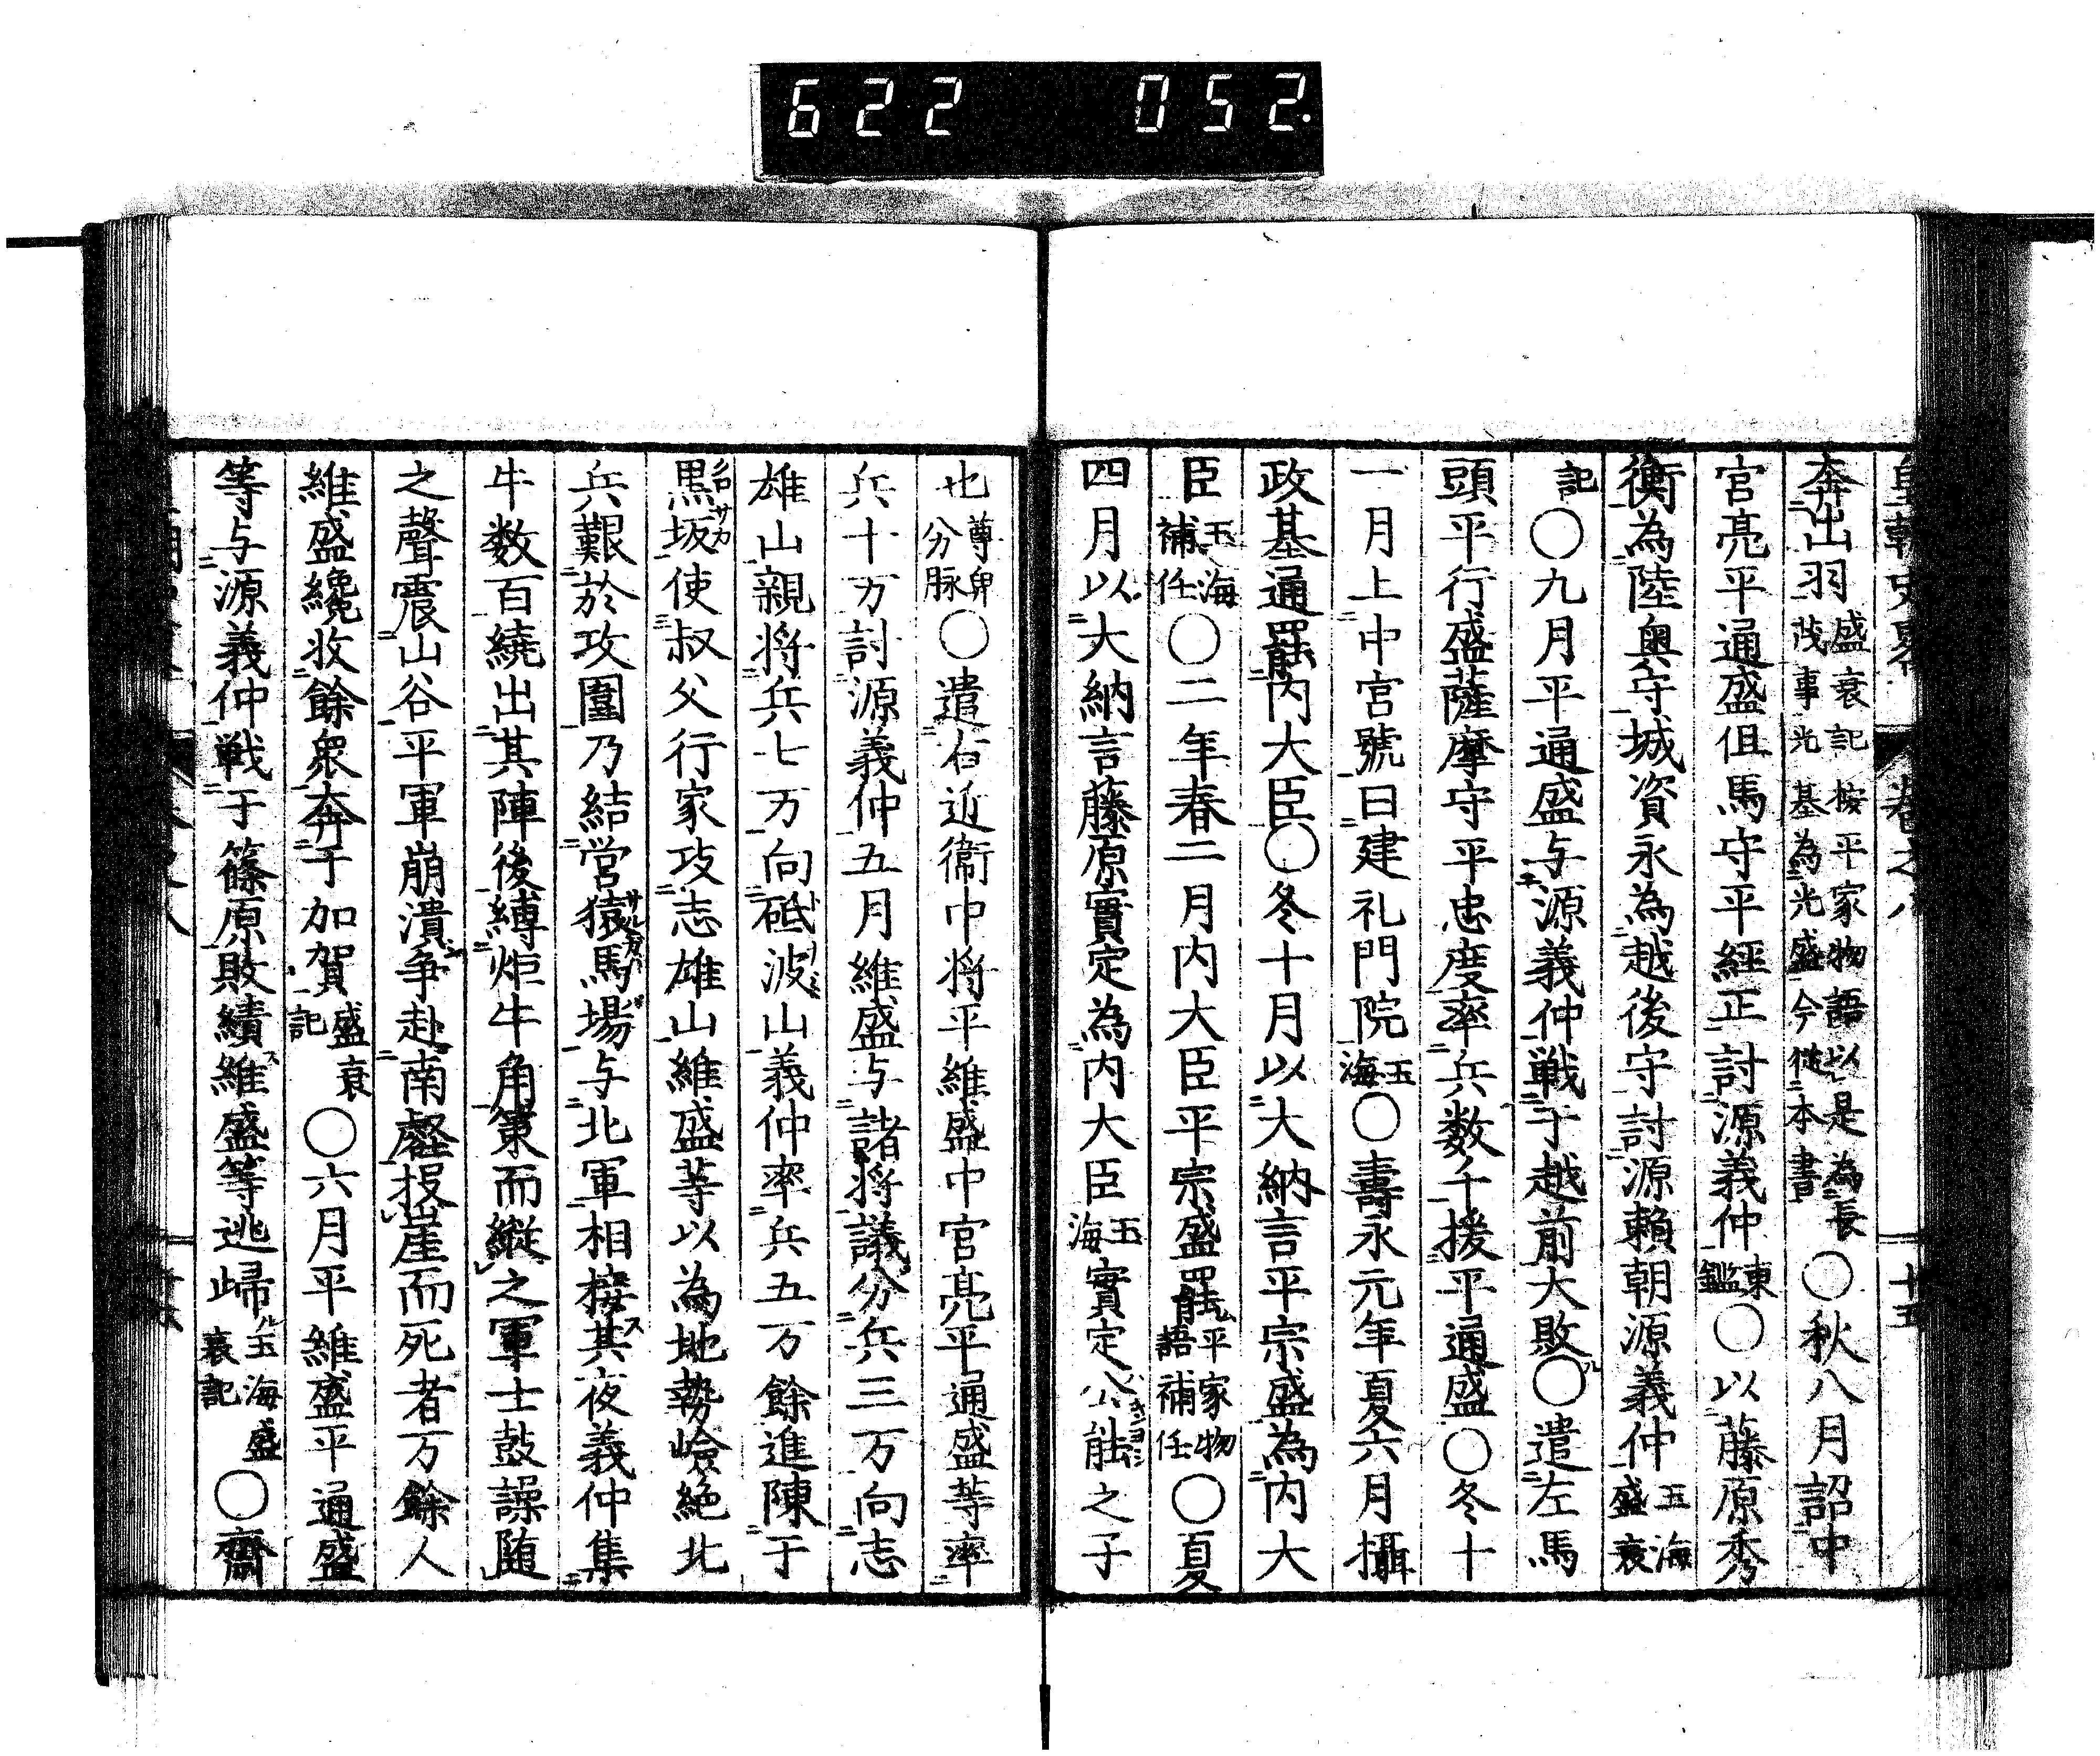 622 052.
奔出羽盛衰記按平家物語以是為長茂事光基為光盛今従本書〇秋八月詔中
宮亮平通盛但馬守平經正討源義仲東鑑〇以藤原秀
衡為陸奥守城資永為越後守討源頼朝源義仲玉海盛衰
記〇九月平通盛与源義仲戦于越前大敗〇遣左馬
頭平行盛薩摩守平忠度率兵数千援平通盛〇冬十
一月上中宮號曰建礼門院玉海〇壽永元年夏六月攝
政基通罷内大臣〇冬十月以大納言平宗盛為内大
臣玉海補任〇二年春二月内大臣平宗盛罷平家物語補任〇夏
四月以大納言藤原實定為内大臣玉海實定公能之子
也尊卑分脈〇遣右近衞中将平維盛中宮亮平通盛等率
兵十万討源義仲五月維盛与諸将議分兵三万向志
雄山親将兵七万向砥波山義仲率兵五万餘進陳于
黒坂使叔父行家攻志雄山維盛等以為地勢嶮絶北
兵艱於攻圍乃結営猿馬場与北軍相接其夜義仲集
牛数百繞出其陣後縛炬牛角策而縦之軍士鼓譟随
之聲震山谷平軍崩潰争赴南壑投崖而死者万餘人
維盛纔收餘衆奔于加賀盛衰記〇六月平維盛平通盛
等与源義仲戦于篠原敗績維盛等逃歸玉海盛衰記〇齋